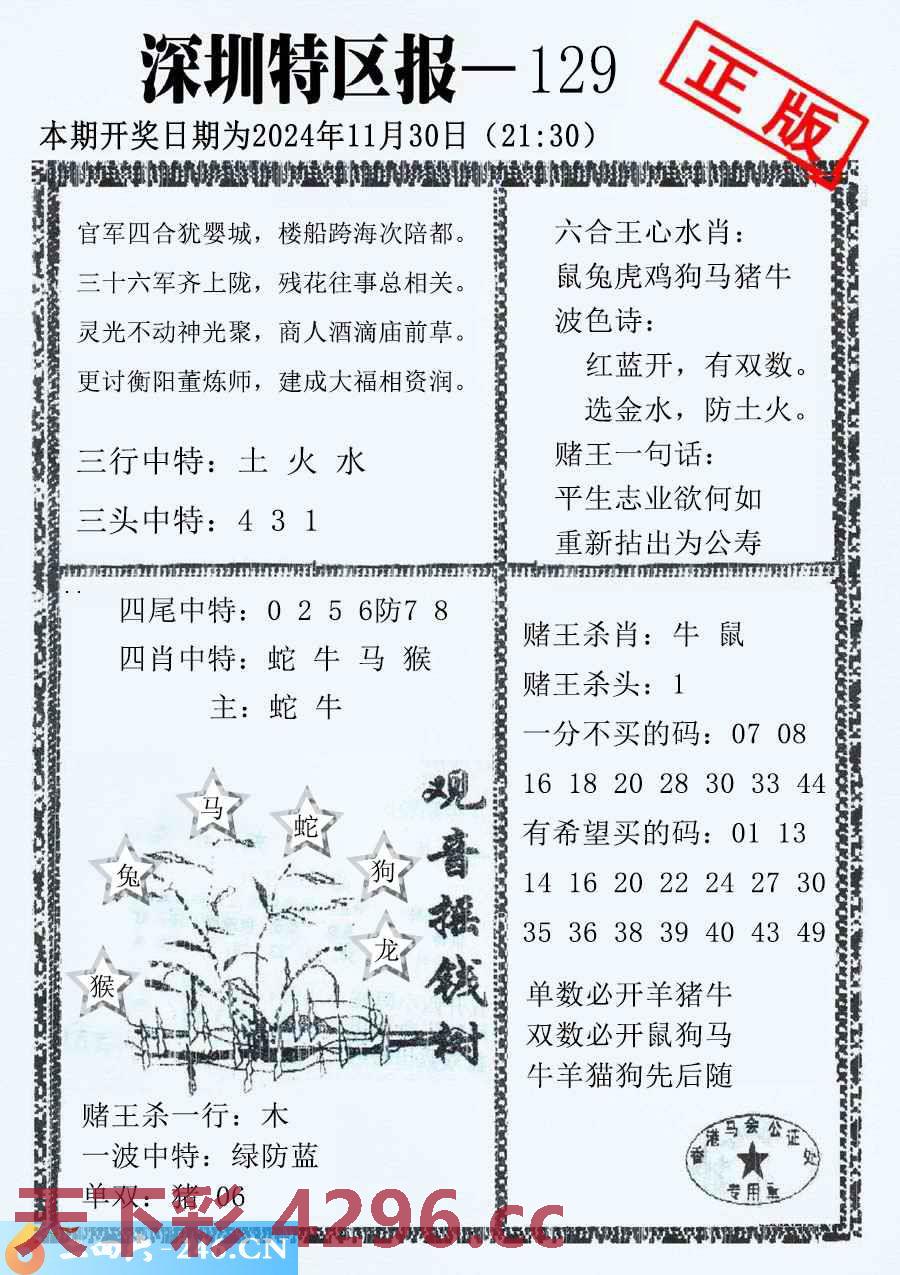 深圳特区报—129
正版
本期开奖日期为2024年11月30日（21:30）
官军四合犹婴城，楼船跨海次陪都。
三十六军齐上陇，残花往事总相关。
灵光不动神光聚，商人酒滴庙前草。
更讨衡阳董炼师，建成大福相资润。
三行中特：土 火 水
三头中特：4 3 1
六合王心水肖：
鼠兔虎鸡狗马猪牛
波色诗：
红蓝开，有双数。
选金水，防土火。
赌王一句话：
平生志业欲何如
重新拈出为公寿
四尾中特：0 2 5 6防7 8
四肖中特：蛇 牛 马 猴
主：蛇 牛
马
蛇
兔
狗
龙
猴
观音摇钱树
赌王杀一行：木
一波中特：绿防蓝
单双：猪 06
赌王杀肖：牛 鼠
赌王杀头：1
一分不买的码：07 08
16 18 20 28 30 33 44
有希望买的码：01 13
14 16 20 22 24 27 30
35 36 38 39 40 43 49
单数必开羊猪牛
双数必开鼠狗马
牛羊猫狗先后随
香港马会公证处
专用章
天下彩 4296.cc
-246.CN